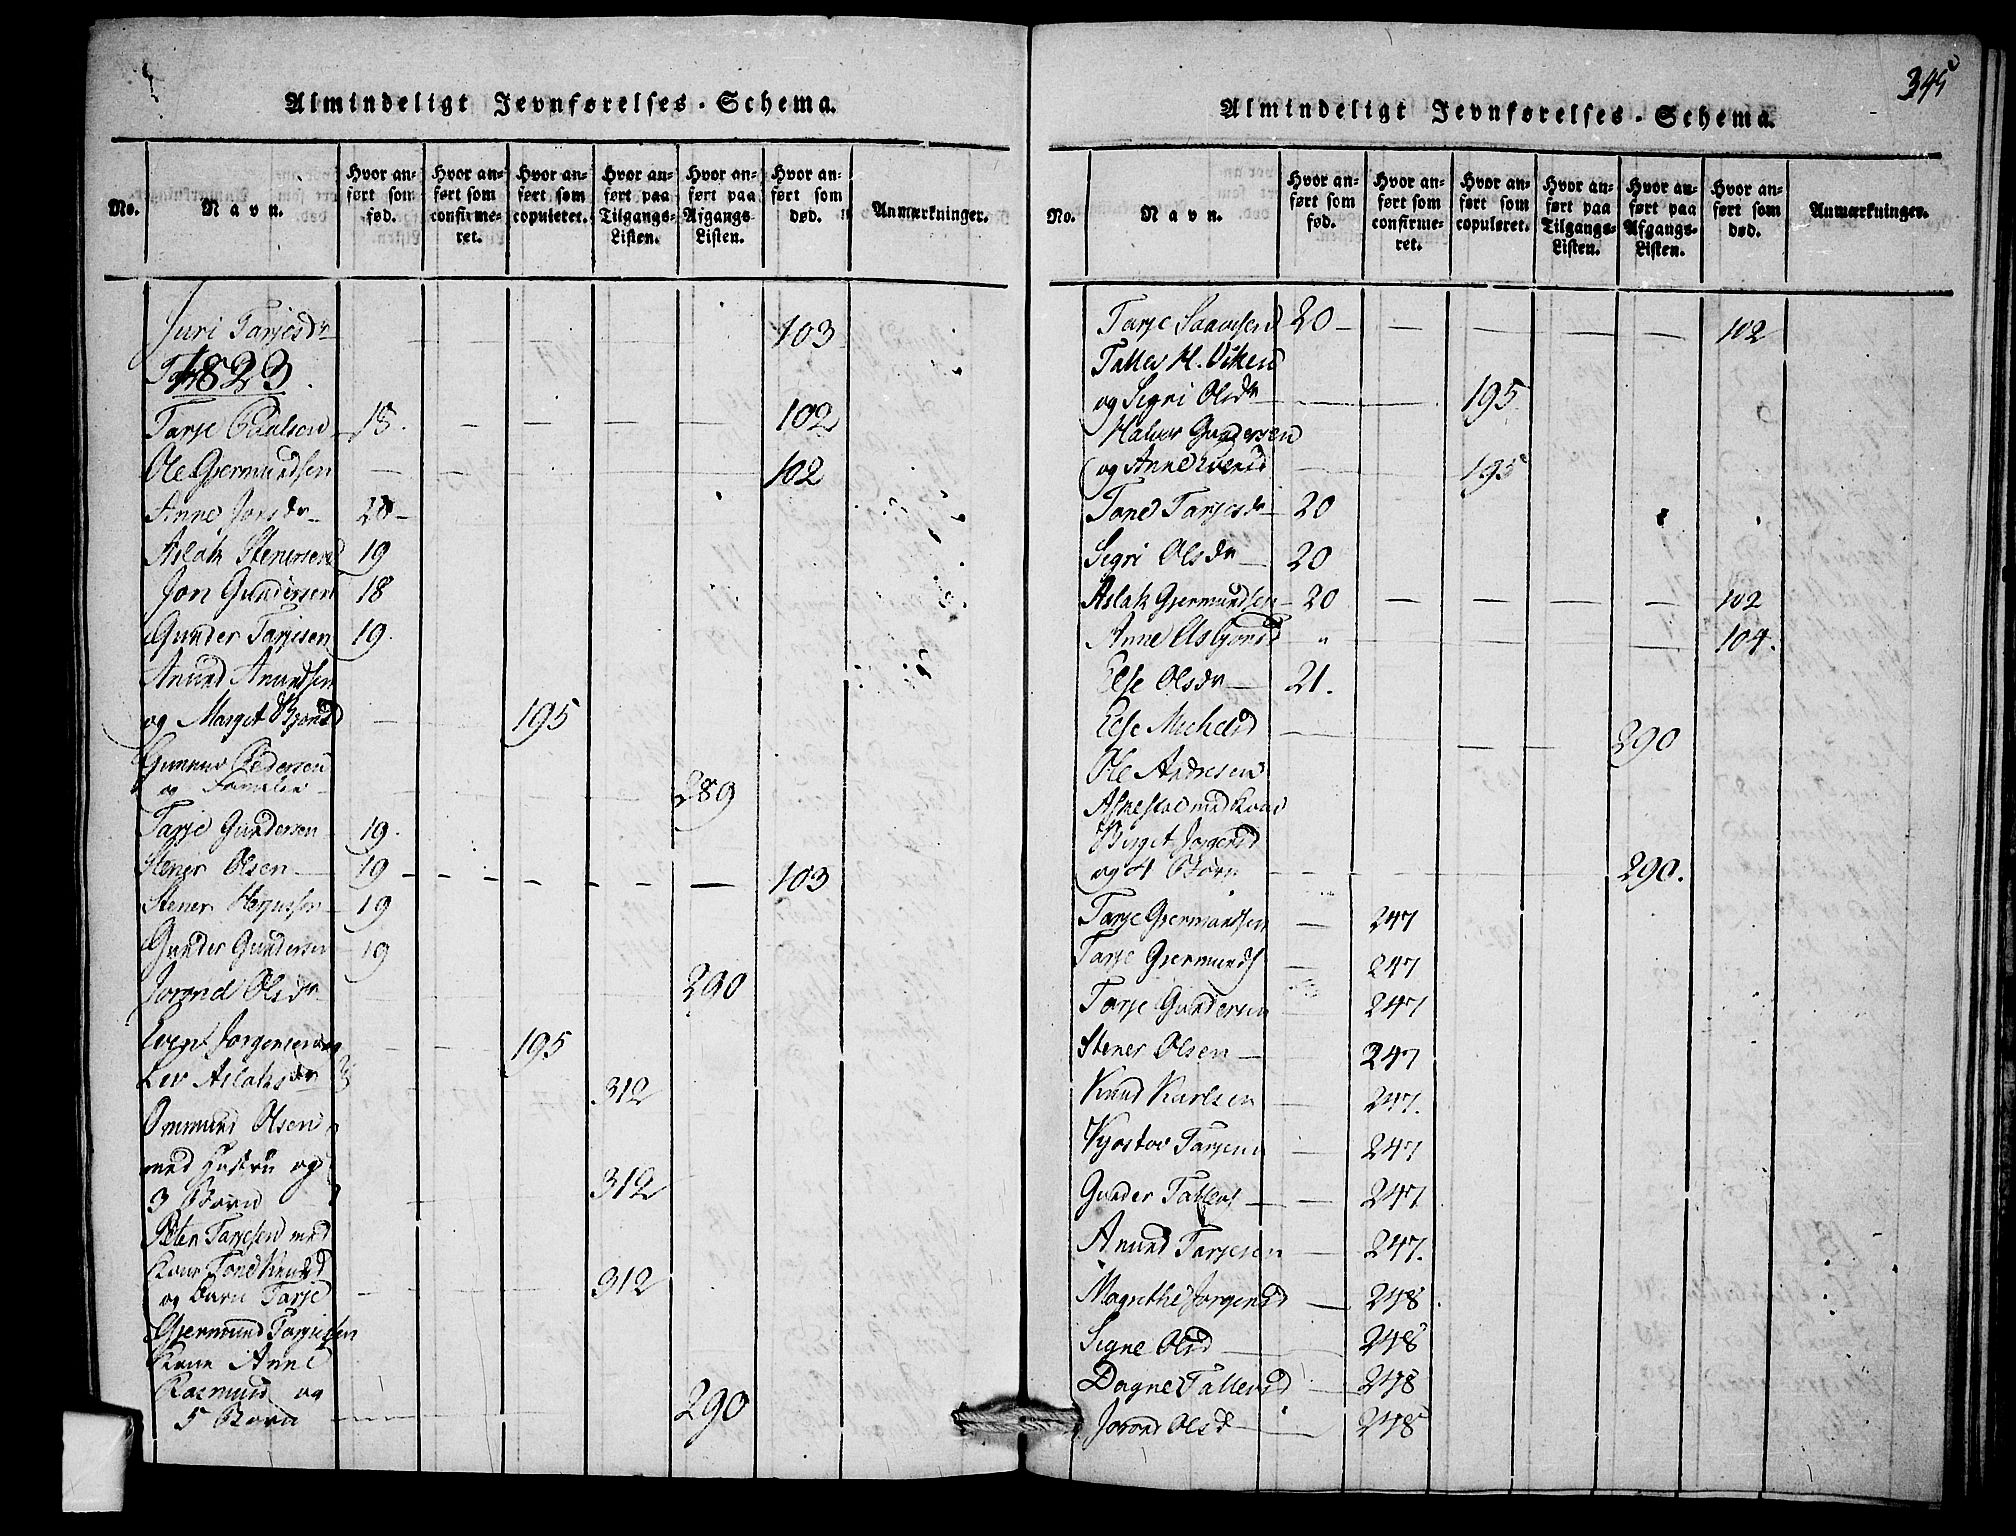 Almindeligt Jevnførelses-Schema.
No. Navn. Hvor anført som fød. Hvor anført som confirmeret. Hvor anført som copuleret. Hvor anført paa Tilgangs-Listen. Hvor anført paa Afgangs-Listen. Hvor anført som død. Anmærkninger.
Juri Tarjesdr 103
1823
Tarje Paalsen 18. 102
Ole Gjermundsen 102
Anne Jonsdr 20
Aslak Stenersen 19
Jon Gundersen 18
Gunder Tarjesen 19.
Anund Anundsen
og Marget 195
Gunnar Pedersen
og Familie 289
Tarje Gundersen 19.
Stener Olsen 19 103
Stener 19
Gunder Gundersen 19
Jorond Olsdr 290
Even Jorgensen og 195
Lev Aslaksdr 312
Ommund Olsen
med Hustru og
3 Børn 312
Peter Tarjesen med
Kone Tone Knudsd
og Barn Tarje 312
Gjermund Tarjesen
Kone Anne
Rasmusd og
5 Børn 290
345
Almindeligt Jevnførelses-Schema.
No. Navn. Hvor anført som fød. Hvor anført som confirmeret. Hvor anført som copuleret. Hvor anført paa Tilgangs-Listen. Hvor anført paa Afgangs-Listen. Hvor anført som død. Anmærkninger.
Tarje Saavesen 20 102
Tallev H. Viken
og Segri Olsdr 195
Halvor Gundersen
og Anne Evensd 195
Tone Tarjesdr 20
Segri Olsdr 20
Aslak Gjermundsen 20 102
Anne Asbjønsd " 104.
Else Olsdr 21.
Else Michelsd 290
Ole Andresen
med Kone
Birget Jorgensd
og 4 Børn 290.
Tarje Gjermundsen 247
Tarje Gjermunds 247
Tarje Gundersen 247
Stener Olsen 247
Knud Karlsen 247.
Kjøstov Tarjesen 247
Gunder Tallevs 247
Anund Tarjesen 247.
Magrethe Jorgensd 248.
Segne Olsd 248
Dagne Tallevsd 248
Jorond Olsd 248